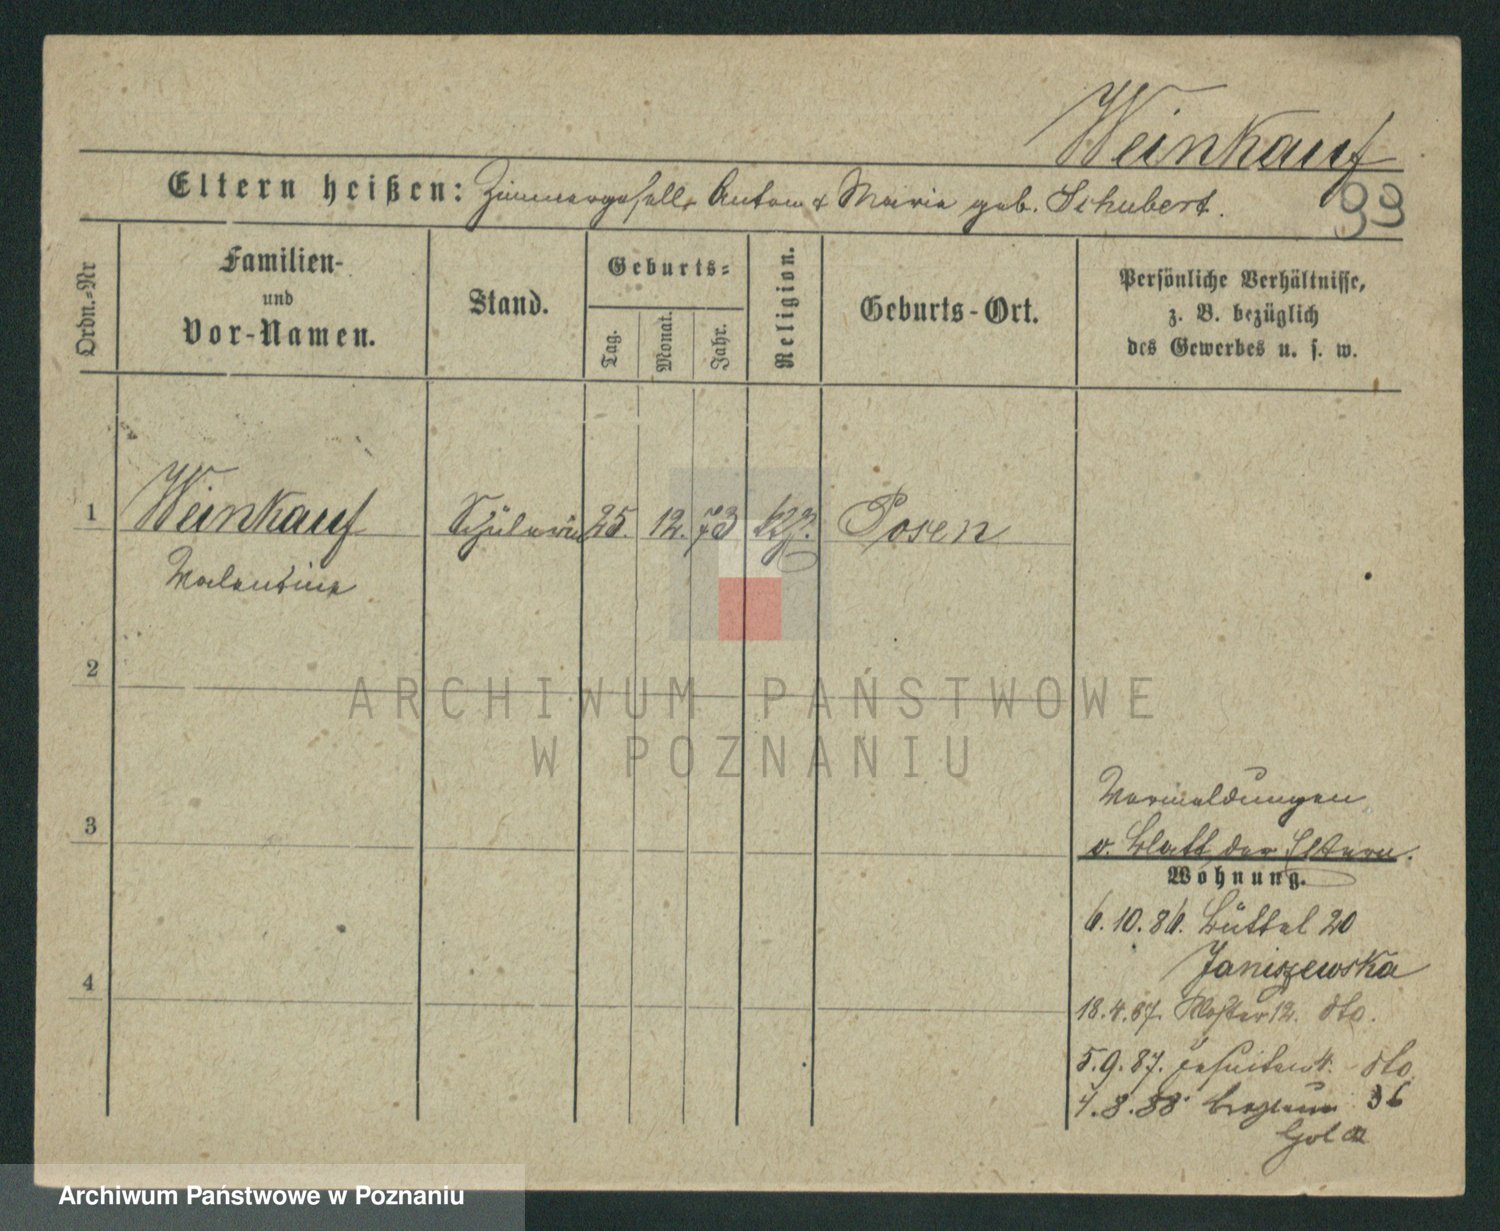 Weinkauf
Eltern heißen: Zimmergeselle Anton & Maria geb. Schubert.
93
Ordn.=Nr
Familien-
und
Vor-Namen.
Stand.
Geburts=
Tag.
Monat.
Jahr.
Religion.
Geburts-Ort.
Persönliche Verhältnisse,
z. B. bezüglich
des Gewerbes u. s. w.
1 Weinkauf Schülerin 25. 12. 73 Posen
Valentine
2
ARCHIWUM PAŃSTWOWE
W POZNANIU
3
Vormeldungen
v. Blatt der Eltern.
Wohnung.
6.10.86. Büttel 20
4
Janiszewska
18.4.87. Kloster 12. dto.
5.9.87. Jesuiten 4. dto.
7.8.88
Archiwum Państwowe w Poznaniu